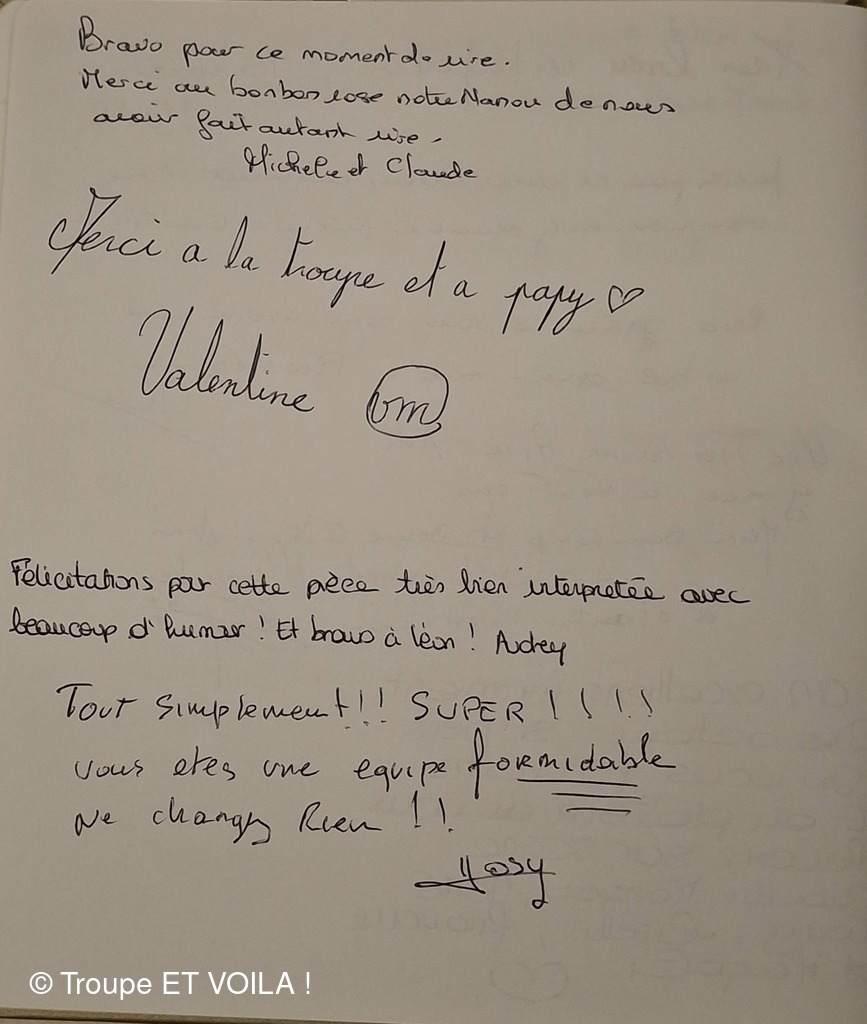 Bravo pour ce moment de rire.
Merci au bonbon rose notre Nanou de nous
avoir fait autant rire.
Michele et Claude
Merci a la troupe et a papy ♡
Valentine vm
Félicitations pour cette pièce très bien interpretée avec
beaucoup d'humour ! Et bravo à léon ! Audrey
Tout simplement !!! SUPER ! ! ! !
vous etes une equipe formidable
Ne changez Rien ! !
Josy
© Troupe ET VOILA !